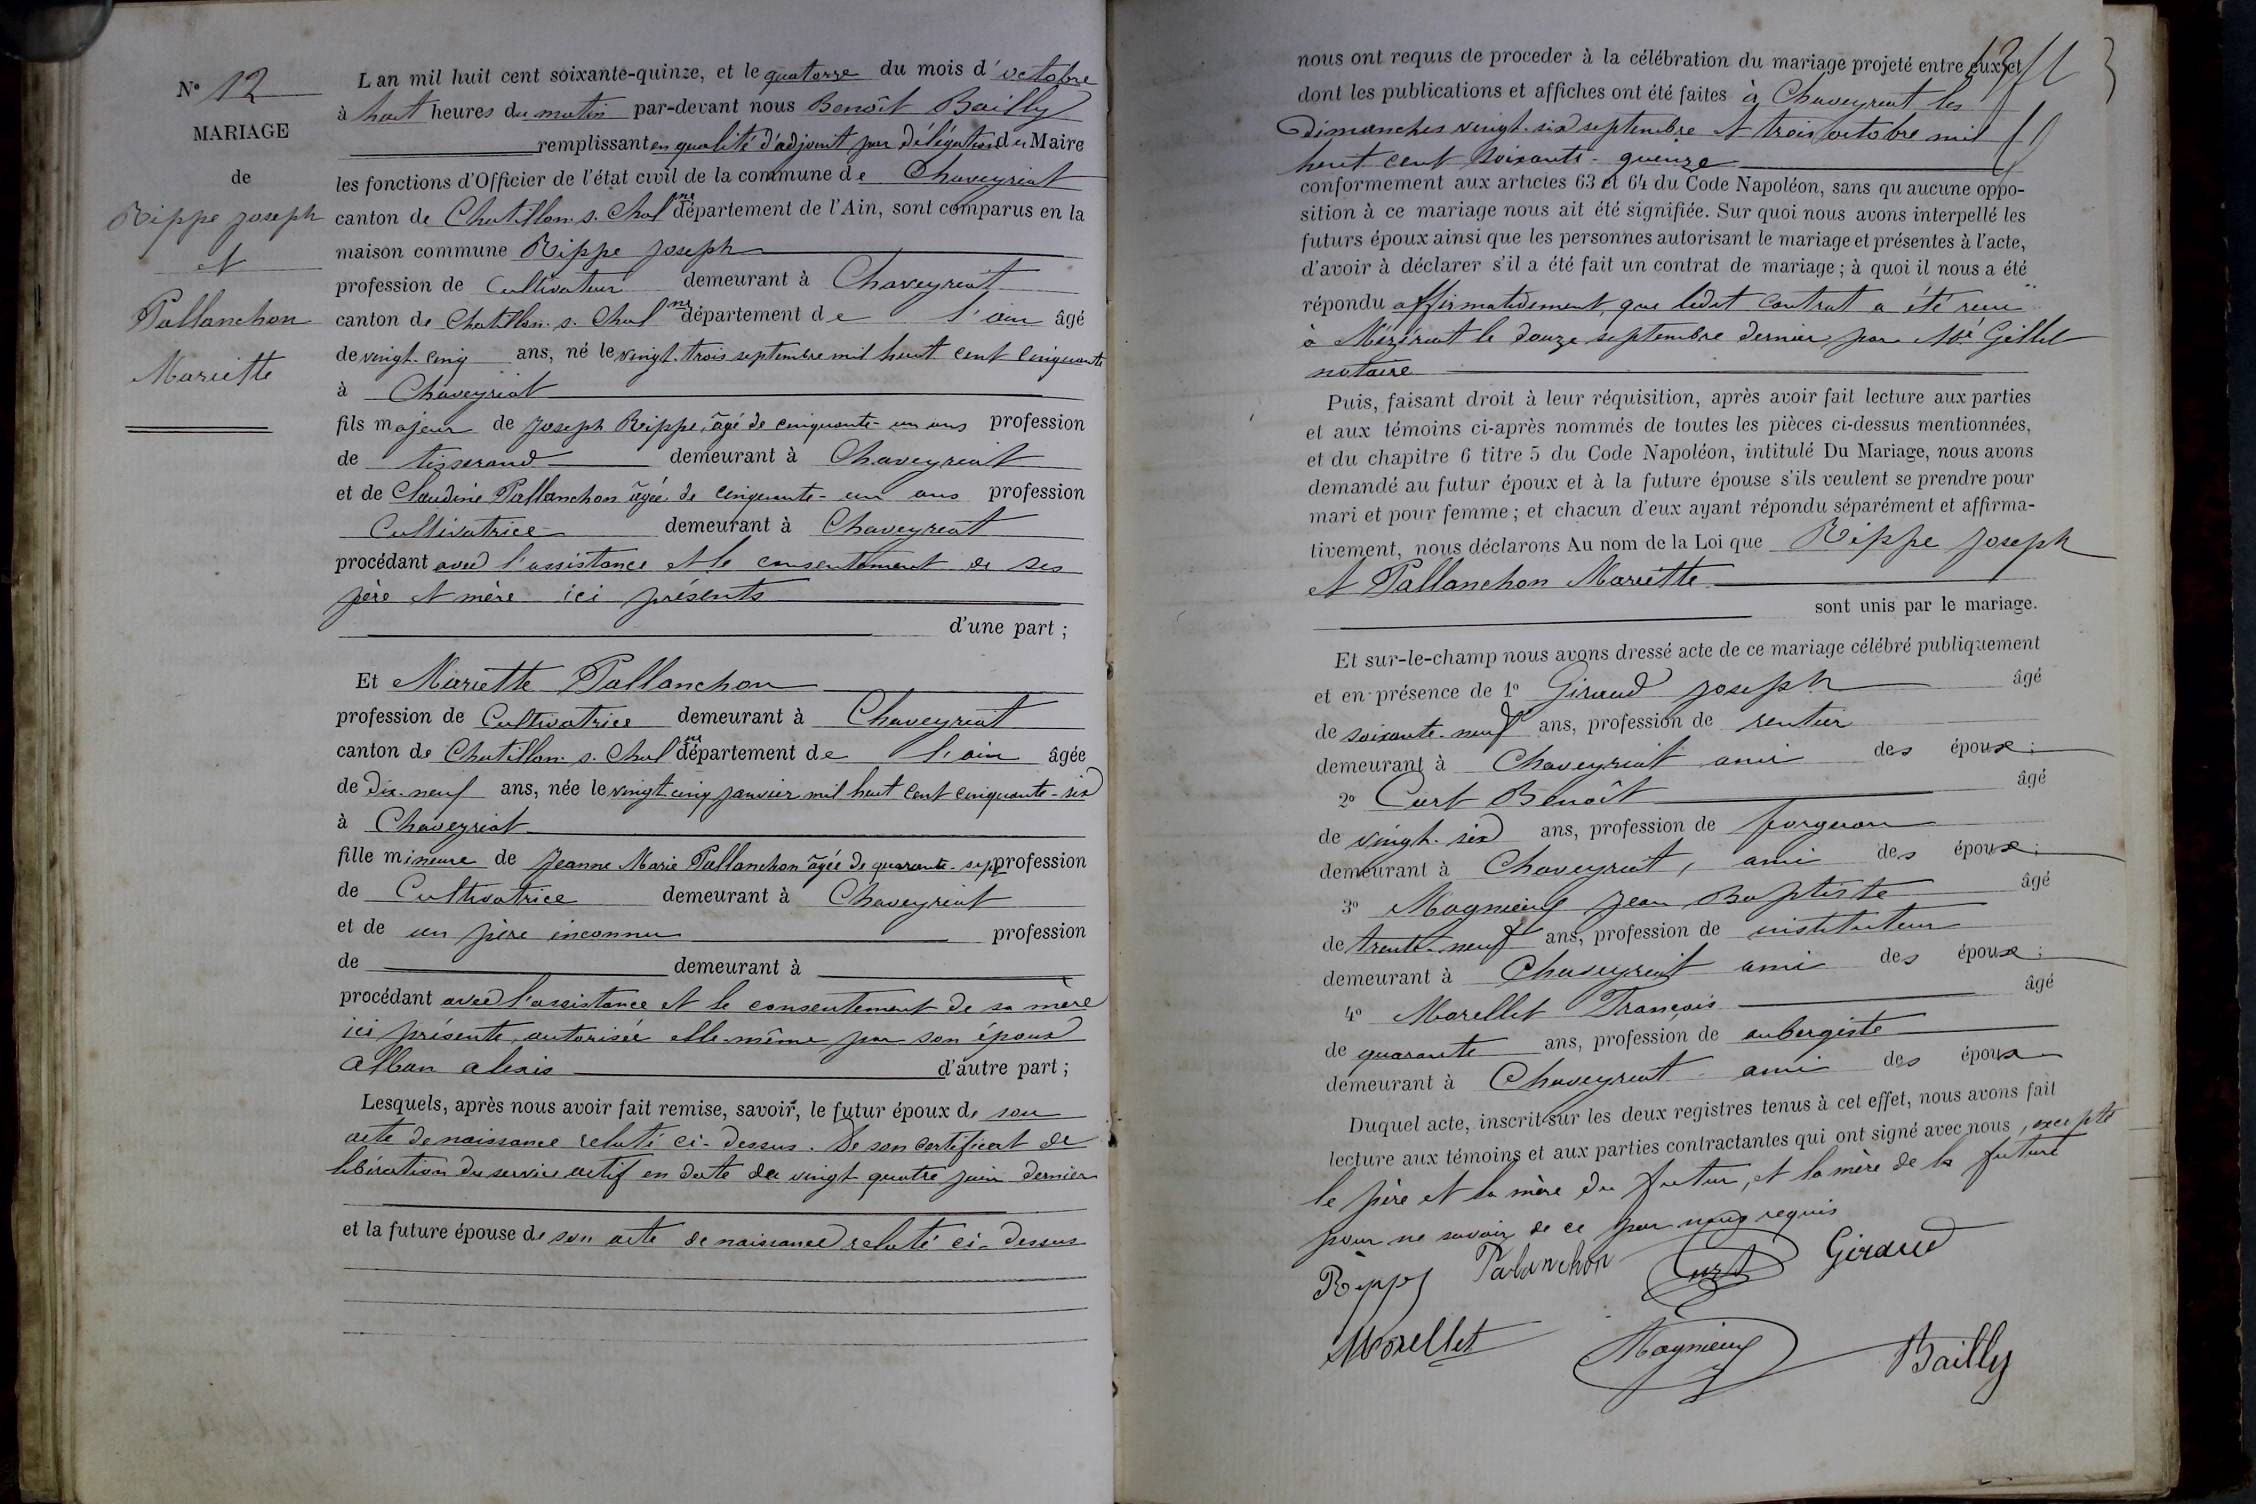 N° 12
MARIAGE
de
Rippe Joseph
et
Pallanchon
Mariette
L'an mil huit cent soixante-quinze, et le quatorze du mois d'octobre
à huit heures du matin par-devant nous Benoît Bailly
remplissant en qualité d'adjoint par délégation du Maire
les fonctions d'Officier de l'état civil de la commune de Chaveyriat
canton de Chatillon s. Chal ne département de l'Ain, sont comparus en la
maison commune Rippe Joseph
profession de Cultivateur demeurant à Chaveyriat
canton de Chatillon s. Chal ne département de l'ain âgé
de vingt-cinq ans, né le vingt-trois septembre mil huit cent cinquante
à Chaveyriat
fils majeur de Joseph Rippe, âgé de cinquante-un ans profession
de tisserand demeurant à Chaveyriat
et de Claudine Pallanchon âgée de cinquante-un ans profession
Cultivatrice demeurant à Chaveyriat
procédant avec l'assistance et le consentement de ses
père et mère ici présents
d'une part ;
Et Mariette Pallanchon
profession de Cultivatrice demeurant à Chaveyriat
canton de Chatillon s. Chal ne département de l'ain âgée
de dix-neuf ans, née le vingt cinq janvier mil huit cent cinquante-six
à Chaveyriat
fille mineure de Jeanne Marie Pallanchon âgée de quarante-sept profession
de Cultivatrice demeurant à Chaveyriat
et de un père inconnu profession
de demeurant à
procédant avec l'assistance et le consentement de sa mère
ici présente, autorisée elle-même par son époux
Alban alexis d'autre part ;
Lesquels, après nous avoir fait remise, savoir, le futur époux de son
acte de naissance relaté ci-dessus. De son certificat de
libération du service actif en date du vingt quatre juin dernier
et la future épouse de son acte de naissance relaté ci-dessus
nous ont requis de proceder à la célébration du mariage projeté entre eux et
dont les publications et affiches ont été faites à Chaveyriat les
dimanches vingt-six septembre et trois octobre mil
huit cent soixante-quinze
conformement aux articles 63 et 64 du Code Napoléon, sans qu'aucune oppo-
sition à ce mariage nous ait été signifiée. Sur quoi nous avons interpellé les
futurs époux ainsi que les personnes autorisant le mariage et présentes à l'acte,
d'avoir à déclarer s'il a été fait un contrat de mariage ; à quoi il nous a été
répondu affirmativement, que ledit contrat a été reçu
à Mézériat le douze septembre dernier par Me Gillet
notaire
Puis, faisant droit à leur réquisition, après avoir fait lecture aux parties
et aux témoins ci-après nommés de toutes les pièces ci-dessus mentionnées,
et du chapitre 6 titre 5 du Code Napoléon, intitulé Du Mariage, nous avons
demandé au futur époux et à la future épouse s'ils veulent se prendre pour
mari et pour femme ; et chacun d'eux ayant répondu séparément et affirma-
tivement, nous déclarons Au nom de la Loi que Rippe Joseph
et Pallanchon Mariette
sont unis par le mariage.
Et sur-le-champ nous avons dressé acte de ce mariage célébré publiquement
et en présence de 1° Giraud Joseph âgé
de soixante-neuf ans, profession de rentier
demeurant à Chaveyriat ami des époux ;
2° Curt Benoît âgé
de vingt-six ans, profession de forgeron
demeurant à Chaveyriat, ami des époux ;
3° Magnieux Jean Baptiste âgé
de trente-neuf ans, profession de instituteur
demeurant à Chaveyriat ami des époux ;
4° Morellet François âgé
de quarante ans, profession de aubergiste
demeurant à Chaveyriat ami des époux
Duquel acte, inscrit sur les deux registres tenus à cet effet, nous avons fait
lecture aux témoins et aux parties contractantes qui ont signé avec nous, excepté
le père et la mère du futur, et la mère de la future
pour ne savoir de ce par nous requis
Rippe Palanchon Curt Giraud
Morellet Magnieux Bailly